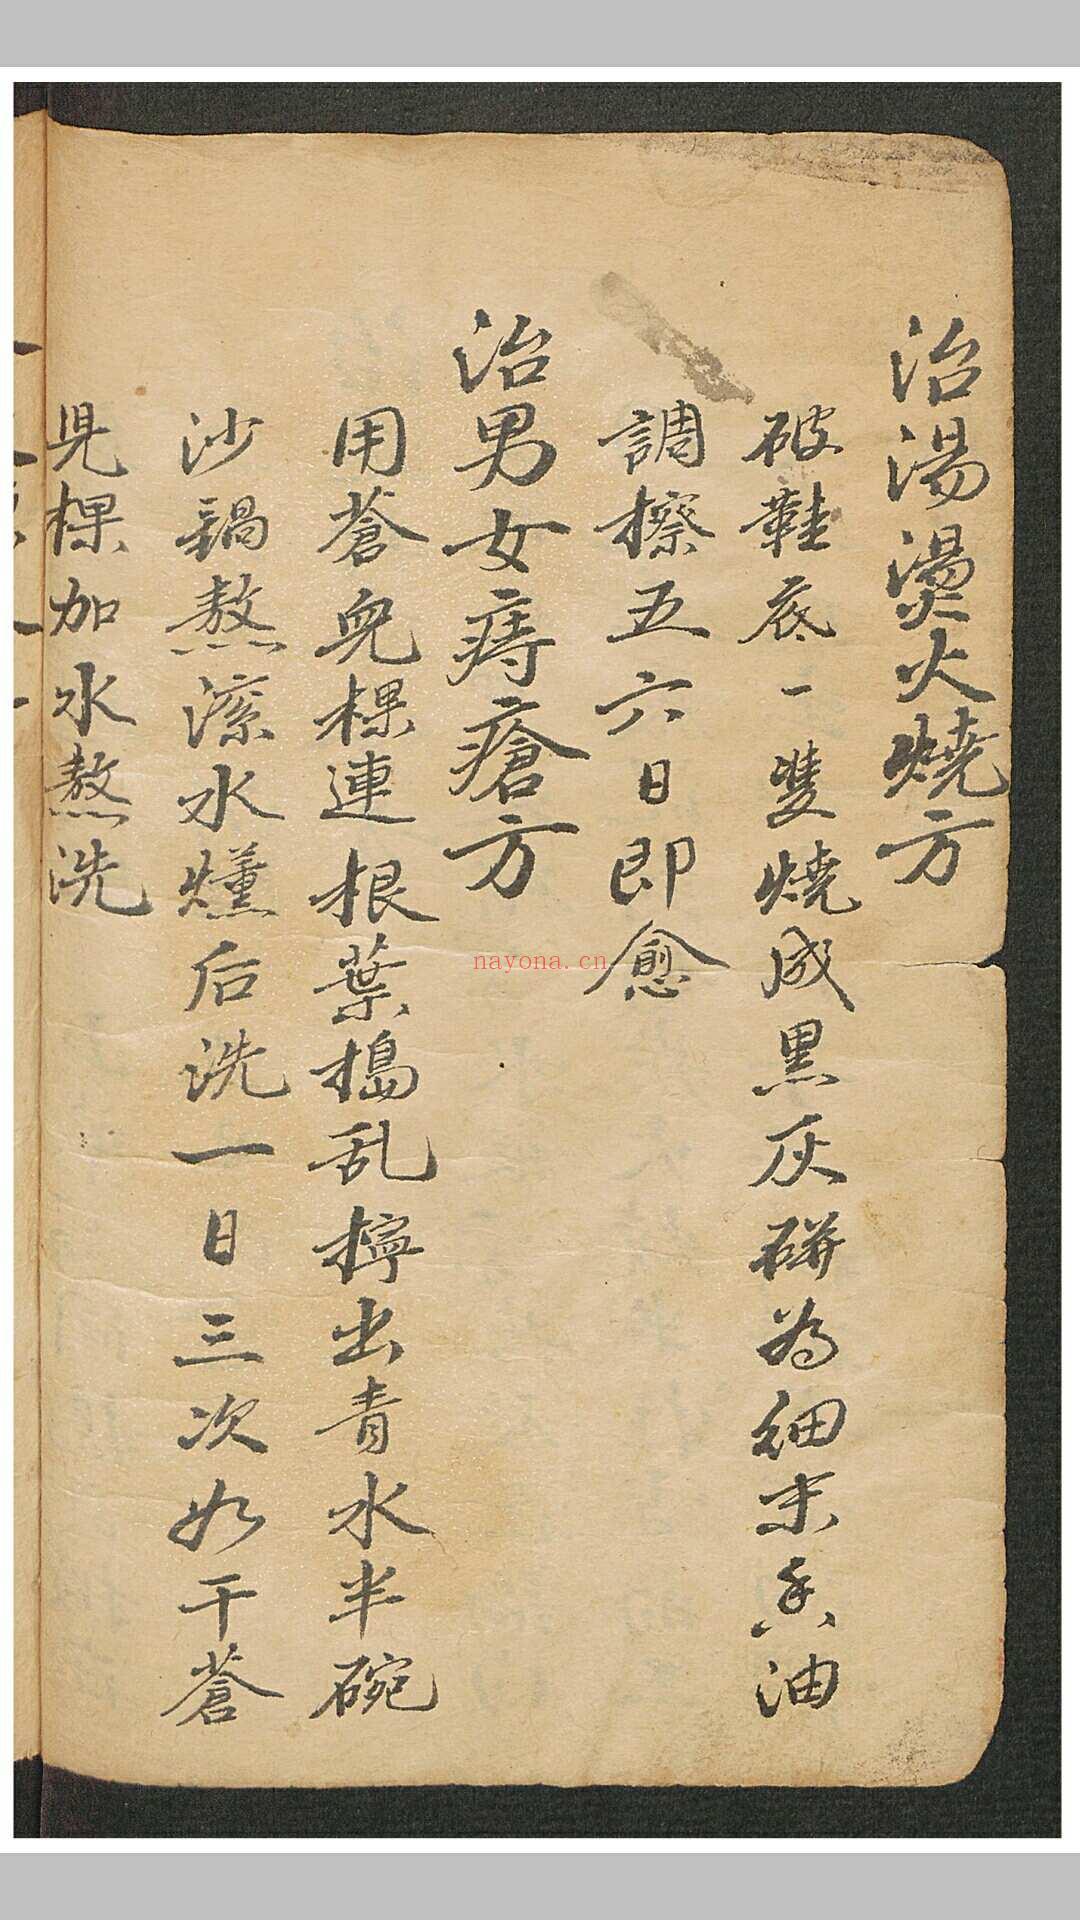 治湯燙火燒方
破鞋底一雙燒成黑灰研為細末香油
調擦五六日即愈
治男女痔瘡方
用蒼兒棵連根葉搗乱擰出青水半碗
沙鍋熬滾水燻后洗一日三次如干蒼
兒棵加水熬洗
nayona.cn